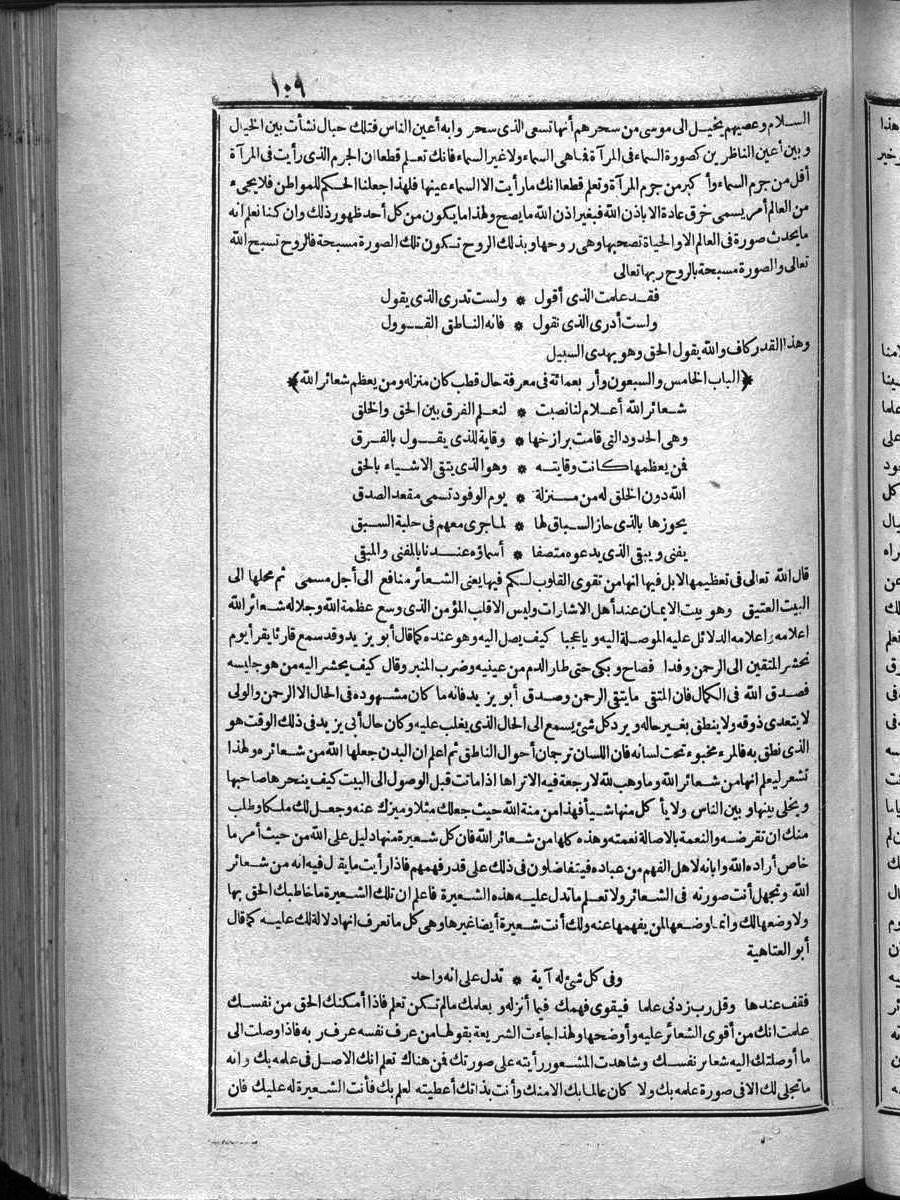 ١٠٩
السلام وعصيهم يخيل الى موسى من سحرهم أنها تسعى الذى سحر وابه أعين الناس فتلك حبال نشأت بين الخيال
وبين أعين الناظرين كصورة السماء فى المرآة فما هى السماء ولا غير السماء فانك تعلم قطعا ان الجرم الذى رأيت فى المرآة
أقل من جرم السماء وأكبر من جرم المرآة وتعلم قطعا انك ما رأيت الا السماء عينها فلهذا جعلنا الحكم للمواطن فلا يجىء
من العالم أمر يسمى خرق عادة الا باذن الله فبغير اذن الله ما يصح ولهذا ما يكون من كل أحد ظهور ذلك وان كنا نعلم انه
ما يحدث صورة فى العالم الا والحياة تصحبها وهى روحها وبذلك الروح تكون تلك الصورة مسبحة فالروح تسبح الله
تعالى والصورة مسبحة بالروح ربها تعالى
فقد علمت الذى أقول * ولست تدرى الذى يقول
ولست أدرى الذى نقول * فانه الناطق القوول
وهذا القدر كاف والله يقول الحق وهو يهدى السبيل
﴿الباب الخامس والسبعون وأربعمائة فى معرفة حال قطب كان منزله ومن يعظم شعائر الله﴾
شعائر الله أعلام لنا نصبت * لنعلم الفرق بين الحق والخلق
وهى الحدود التى قامت برازخها * وقاية للذى يقول بالفرق
فمن يعظمها كانت وقايته * وهو الذى يتقى الاشياء بالحق
الله دون الخلق له من منزلة * يوم الوفود تسمى مقعد الصدق
يحوزها بالذى حاز السباق لها * لما جرى معهم فى حلبة السبق
يفنى ويبقى الذى يدعوه متصفا * أسماؤه عندنا بالمفنى والمبقى
قال الله تعالى فى تعظيمها الابل فيها انها من تقوى القلوب لكم فيها يعنى الشعائر منافع الى أجل مسمى ثم محلها الى
البيت العتيق وهو بيت الايمان عند أهل الاشارات وليس الا قلب المؤمن الذى وسع عظمة الله وجلاله شعائر الله
اعلامه واعلامه الدلائل عليه الموصلة اليه ويا عجبا كيف يصل اليه وهو عنده كما قال أبو يزيد وقد سمع قارئا يقرأ يوم
نحشر المتقين الى الرحمن وفدا فصاح وبكى حتى طار الدم من عينيه وضرب المنبر وقال كيف يحشر اليه من هو جليسه
فصدق الله فى الكمال فان المتقى ما يتقى الرحمن وصدق أبو يزيد فانه ما كان مشهوده فى الحال الا الرحمن والولى
لا يتعدى ذوقه ولا ينطق بغير حاله ويرد كل شئ يسمع الى الحال الذى يغلب عليه وكان حال أبى يزيد فى ذلك الوقت هو
الذى نطق به فالمرء مخبوء تحت لسانه فان اللسان ترجمان أحوال الناطق ثم اعلم ان البدن جعلها الله من شعائره ولهذا
تشعر ليعلم انها من شعائر الله وما وهب لله لا رجعة فيه الا تراها اذا ماتت قبل الوصول الى البيت كيف ينحرها صاحبها
ويخلى بينها وبين الناس ولا يأكل منها شيأ فهذا من منة الله حيث جعلك مثلا وميزك عنه وجعل لك ملكا وطلب
منك ان تقرضه والنعمة بالاصالة نعمته وهذه كلها من شعائر الله فان كل شعيرة منها دليل على الله من حيث أمر ما
خاص أراده الله وابانه لاهل الفهم من عباده فيتفاضلون فى ذلك على قدر فهمهم فاذا رأيت ما يقل فيه انه من شعائر
الله وتجهل أنت صورته فى الشعائر ولا تعلم ما تدل عليه هذه الشعيرة فاعلم ان تلك الشعيرة ما خاطبك الحق بها
ولا وضعها لك وانما وضعها لمن يفهمها عنه ولك أنت شعيرة أيضا غيرها وهى كل ما تعرف انها دلالة لك عليه كما قال
أبو العتاهية
وفى كل شئ له آية * تدل على انه واحد
فقف عندها وقل رب زدنى علما فيقوى فهمك فيما أنزله ويعلمك ما لم تكن تعلم فاذا أمكنك الحق من نفسك
علمت انك من أقوى الشعائر عليه وأوضحها ولهذا جاءت الشريعة بقولها من عرف نفسه عرف ربه فاذا وصلت الى
ما أوصلتك اليه شعائر نفسك وشاهدت المشعور رأيته على صورتك فمن هناك تعلم انك الاصل فى علمه بك وانه
ما تجلى لك الا فى صورة علمه بك ولا كان عالما بك الا منك وأنت بذاتك أعطيته لعلم بك فأنت الشعيرة له عليك فان